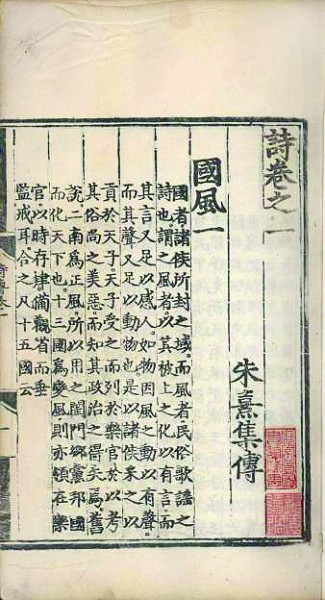 詩卷之一
朱熹集傳
國風一
國者諸侯所封之域而風者民俗歌謠之
詩也謂之風者以其被上之化以有言而
其言又足以感人如物因風之動以有聲
而其聲又足以動物也是以諸侯采之以
貢於天子天子受之而列於樂官於以考
其俗尚之美惡而知其政治之得失焉舊
說二南爲正風所以用之閨門鄉黨邦國
而化天下也十三國爲變風則亦領在樂
官以時存肄備觀省而垂
監戒耳合之凡十五國云